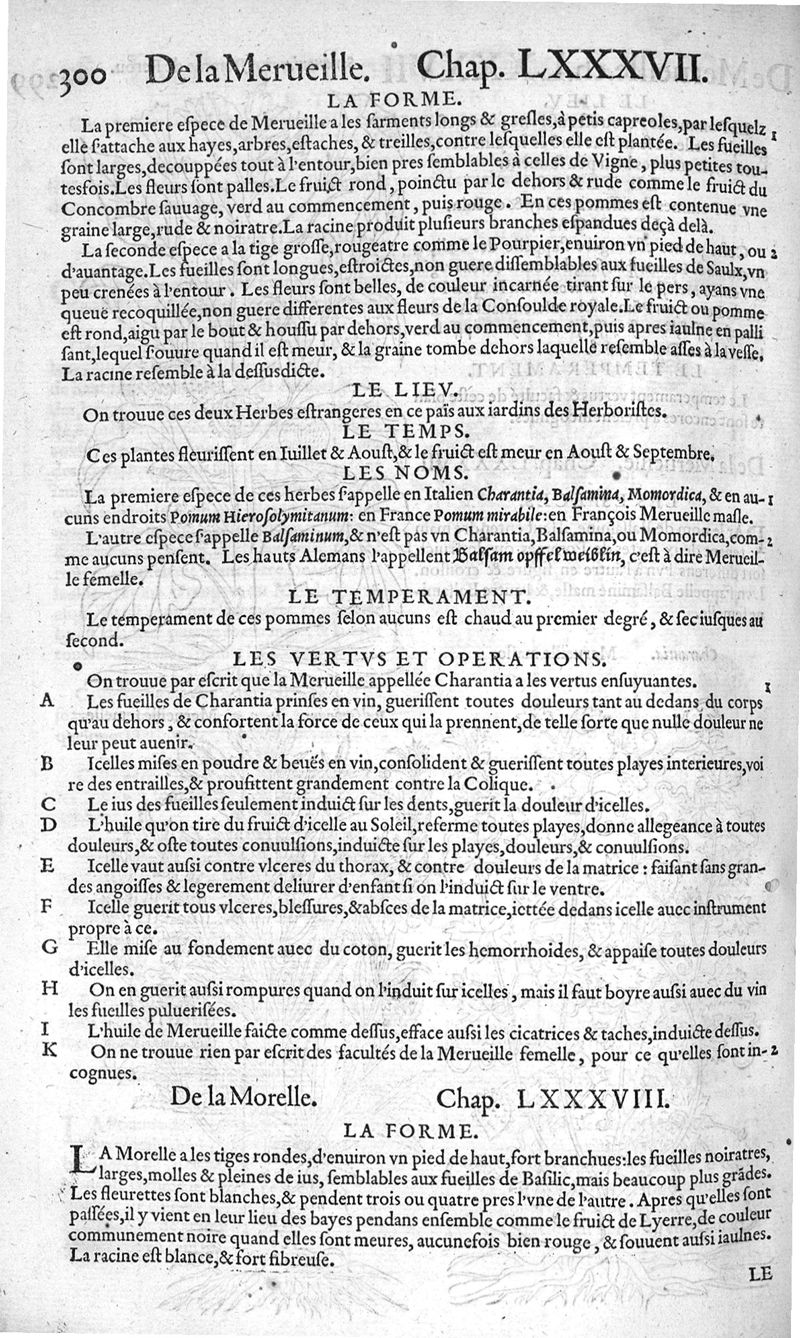 300 De la Merueille. Chap. LXXXVII.
LA FORME.
La premiere espece de Merueille a les sarments longs & gresles, à petis capreoles, par lesquelz 1
elle s'attache aux hayes, arbres, estaches, & treilles, contre lesquelles elle est plantée. Les fueilles
sont larges, decouppées tout à l'entour, bien pres semblables à celles de Vigne, plus petites tou-
tesfois. Les fleurs sont palles. Le fruict rond, poinctu par le dehors & rude comme le fruict du
Concombre sauuage, verd au commencement, puis rouge. En ces pommes est contenue vne
graine large, rude & noiratre. La racine produit plusieurs branches espandues deçà delà.
La seconde espece a la tige grosse, rougeatre comme le Pourpier, enuiron vn pied de haut, ou 2
d'auantage. Les fueilles sont longues, estroictes, non guere dissemblables aux fueilles de Saulx, vn
peu crenées à l'entour. Les fleurs sont belles, de couleur incarnée tirant sur le pers, ayans vne
queue recoquillée, non guere differentes aux fleurs de la Consoulde royale. Le fruict ou pomme
est rond, aigu par le bout & houssu par dehors, verd au commencement, puis apres iaulne en palli
sant, lequel s'ouure quand il est meur, & la graine tombe dehors laquelle resemble asses à la vesse.
La racine resemble à la dessusdicte.
LE LIEV.
On trouue ces deux Herbes estrangeres en ce païs aux iardins des Herboristes.
LE TEMPS.
Ces plantes fleurissent en Iuillet & Aoust, & le fruict est meur en Aoust & Septembre.
LES NOMS.
La premiere espece de ces herbes s'appelle en Italien Charantia, Balsamina, Momordica, & en au- 1
cuns endroits Pomum Hierosolymitanum: en France Pomum mirabile: en François Merueille masle.
L'autre espece s'appelle Balsaminum, & n'est pas vn Charantia, Balsamina, ou Momordica, com- 2
me aucuns pensent. Les hauts Alemans l'appellent Balsam opffel weiblin, c'est à dire Merueil-
le femelle.
LE TEMPERAMENT.
Le temperament de ces pommes selon aucuns est chaud au premier degré, & sec iusques au
second.
LES VERTVS ET OPERATIONS.
On trouue par escrit que la Merueille appellée Charantia a les vertus ensuyuantes. 1
A Les fueilles de Charantia prinses en vin, guerissent toutes douleurs tant au dedans du corps
qu'au dehors, & confortent la force de ceux qui la prennent, de telle sorte que nulle douleur ne
leur peut auenir.
B Icelles mises en poudre & beues en vin, consolident & guerissent toutes playes interieures, voi
re des entrailles, & proufittent grandement contre la Colique.
C Le ius des fueilles seulement induict sur les dents, guerit la douleur d'icelles.
D L'huile qu'on tire du fruict d'icelle au Soleil, referme toutes playes, donne allegeance à toutes
douleurs, & oste toutes conuulsions, induicte sur les playes, douleurs, & conuulsions.
E Icelle vaut aussi contre vlceres du thorax, & contre douleurs de la matrice: faisant sans gran-
des angoisses & legerement deliurer d'enfant si on l'induict sur le ventre.
F Icelle guerit tous vlceres, blessures, & absces de la matrice, iettée dedans icelle auec instrument
propre à ce.
G Elle mise au fondement auec du coton, guerit les hemorrhoides, & appaise toutes douleurs
d'icelles.
H On en guerit aussi rompures quand on l'induit sur icelles, mais il faut boyre aussi auec du vin
les fueilles puluerisées.
I L'huile de Merueille faicte comme dessus, efface aussi les cicatrices & taches, induicte dessus.
K On ne trouue rien par escrit des facultés de la Merueille femelle, pour ce qu'elles sont in- 2
cognues.
De la Morelle. Chap. LXXXVIII.
LA FORME.
LA Morelle a les tiges rondes, d'enuiron vn pied de haut, fort branchues: les fueilles noiratres,
larges, molles & pleines de ius, semblables aux fueilles de Basilic, mais beaucoup plus grādes.
Les fleurettes sont blanches, & pendent trois ou quatre pres l'vne de l'autre. Apres qu'elles sont
passées, il y vient en leur lieu des bayes pendans ensemble comme le fruict de Lyerre, de couleur
communement noire quand elles sont meures, aucunefois bien rouge, & souuent aussi iaulnes.
La racine est blance, & fort fibreuse.
LE